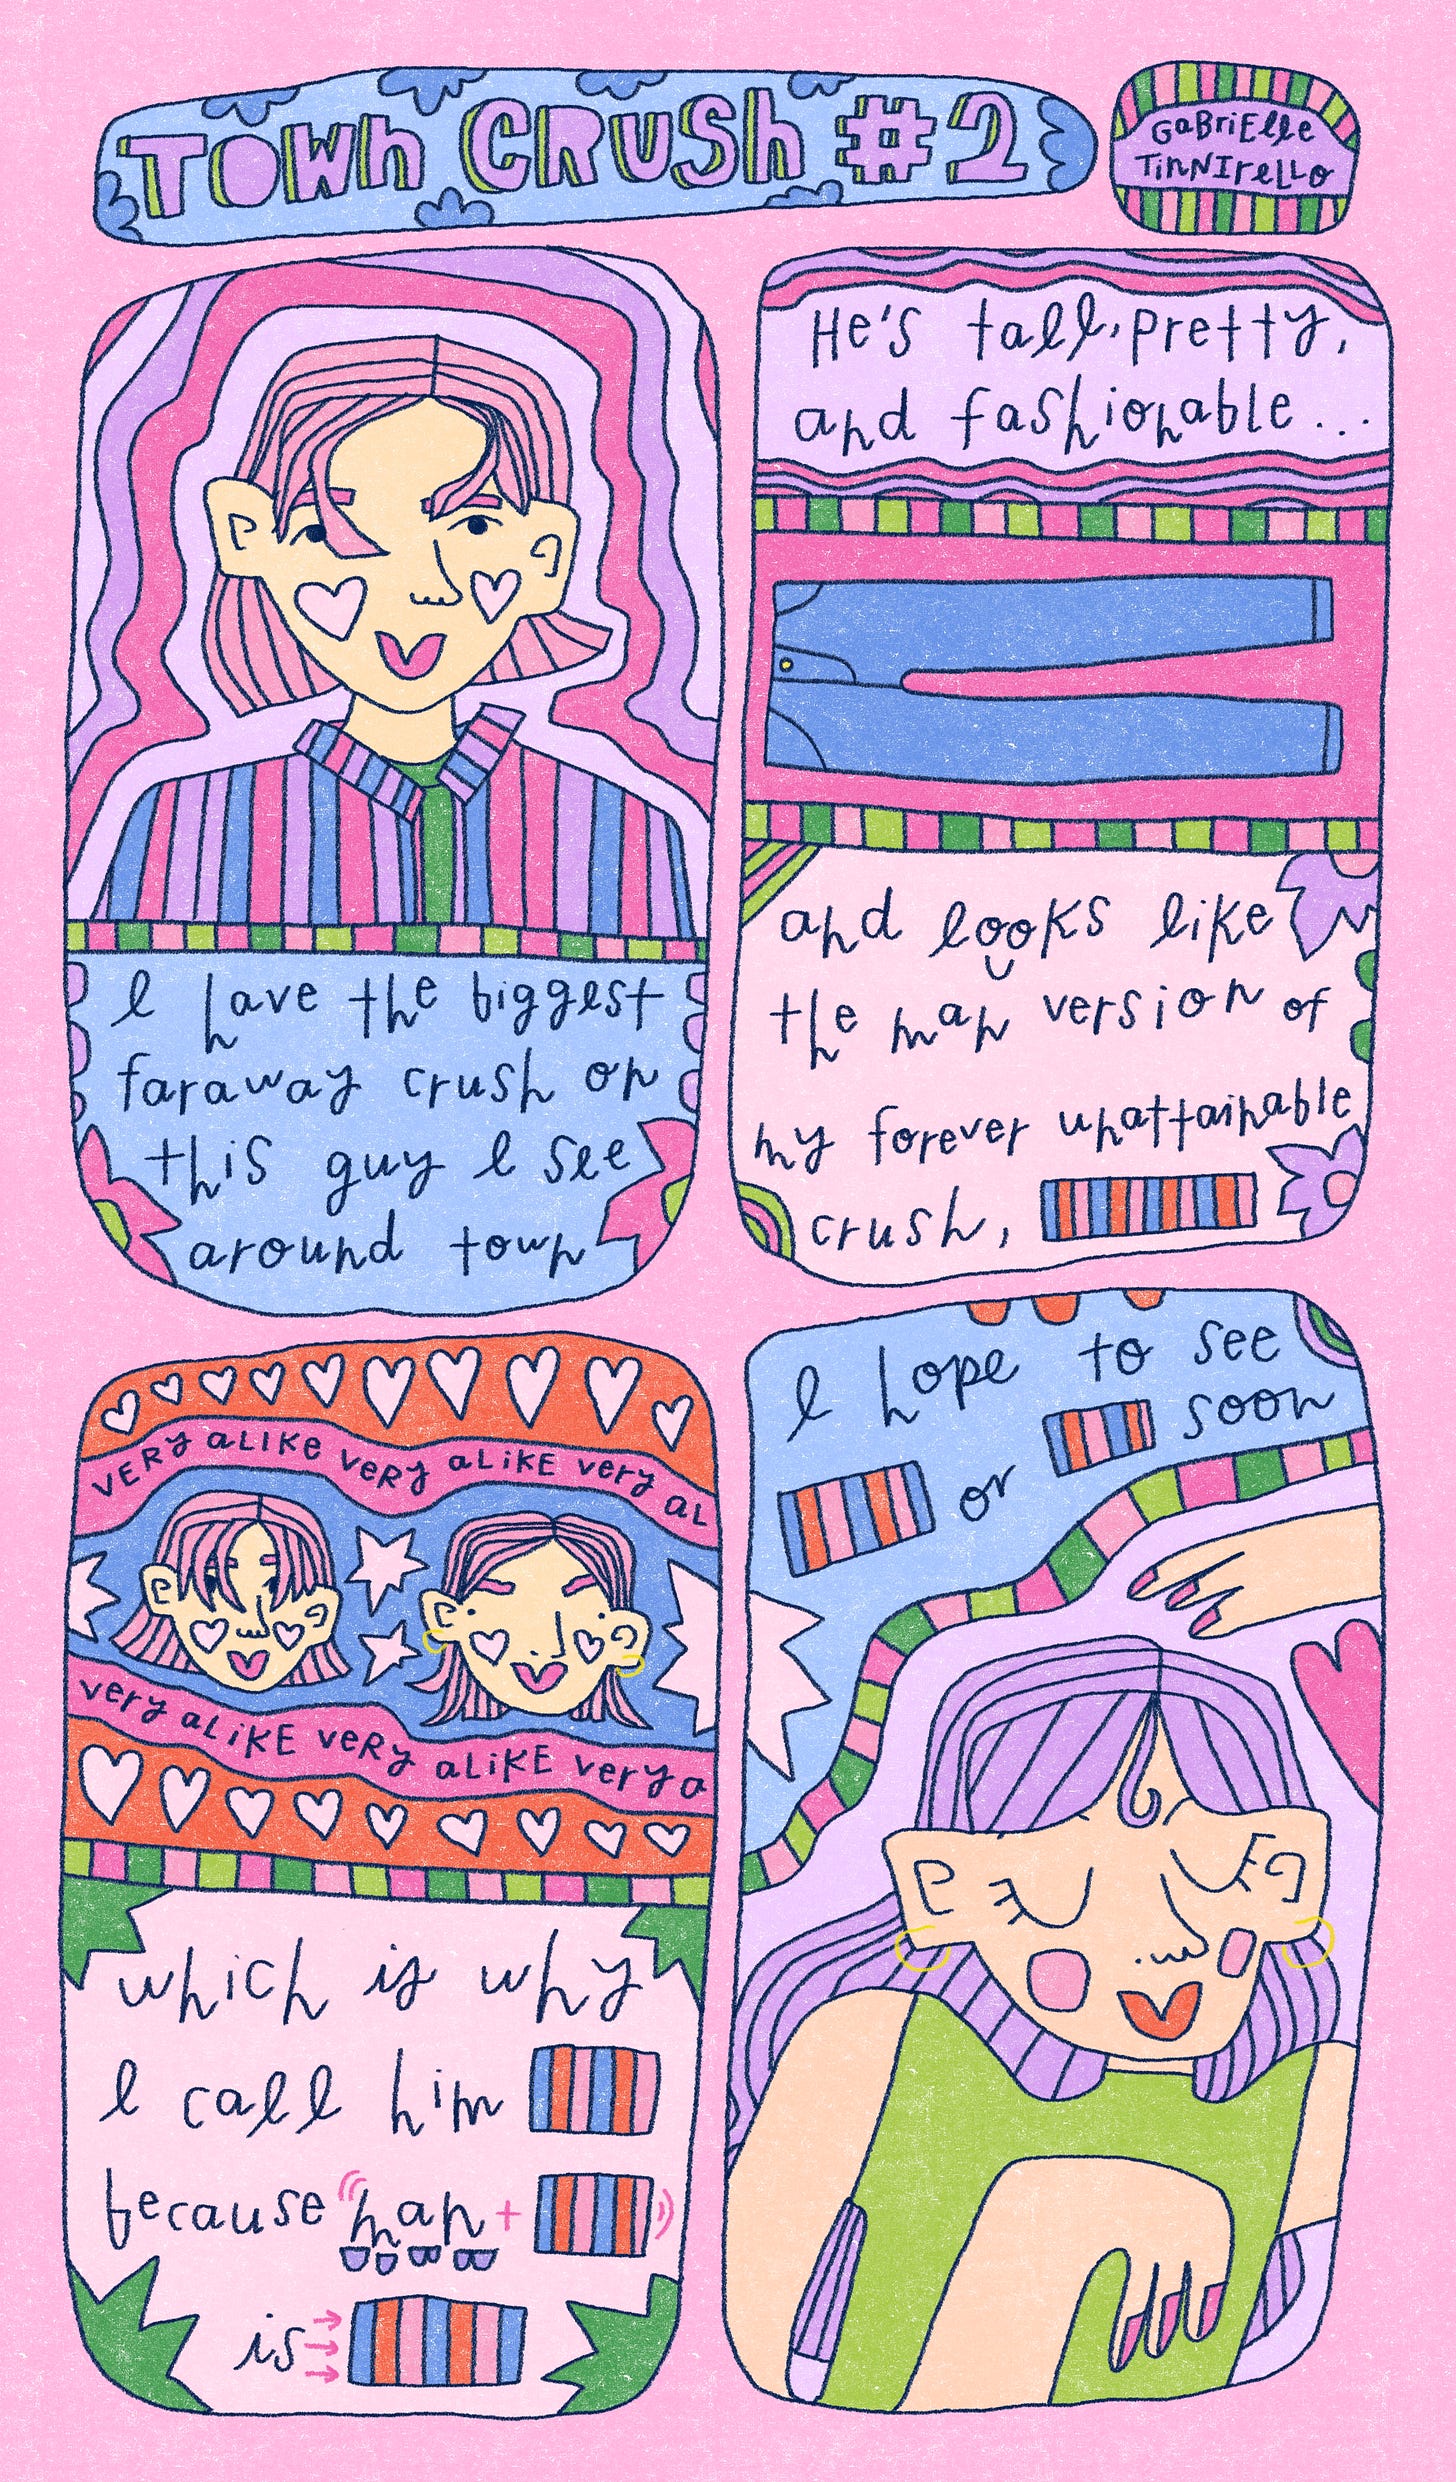 Town CRUSh #2
GaBriElle
TinNIrelLo
I have the biggest
faraway crush on
this guy I see
around town
He's tall, pretty,
and fashionable...
and looks like
the man version of
my forever unattainable
crush,
VERY aLIKe VeRy aLiKE very aL
very aLiKE veRy aLiKE very a
which is why
I call him
because "man +
is
I hope to see
or soon